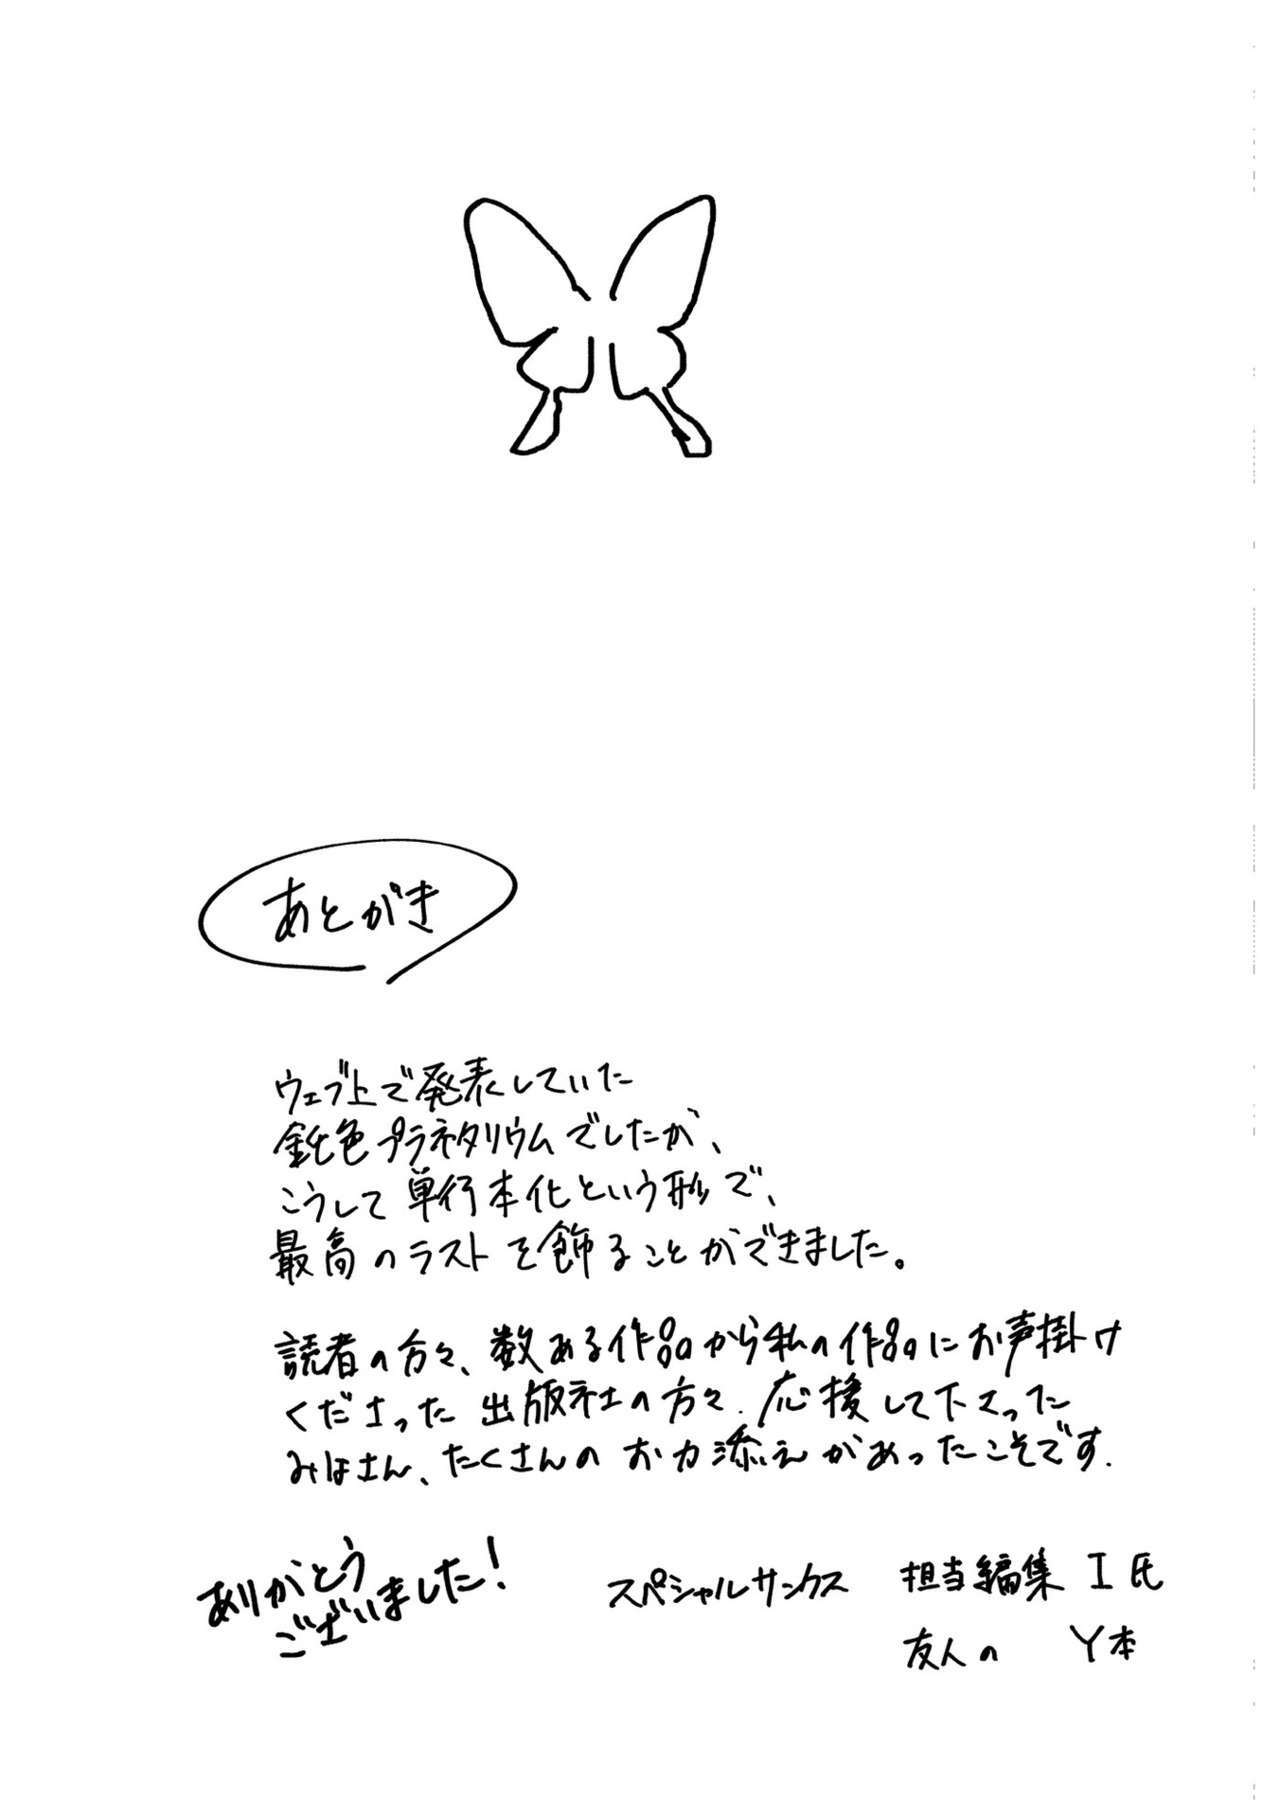 あとがき
ウェブ上で発表していた
鈍色プラネタリウムでしたが、
こうして単行本化という形で、
最高のラストを飾ることができました。
読者の方々、数ある作品から私の作品にお声掛け
くださった出版社の方々、応援して下さった
みほさん、たくさんのお力添えがあったこそです.
ありがとう
ございました!
スペシャルサンクス 担当編集 I氏
友人の Y本